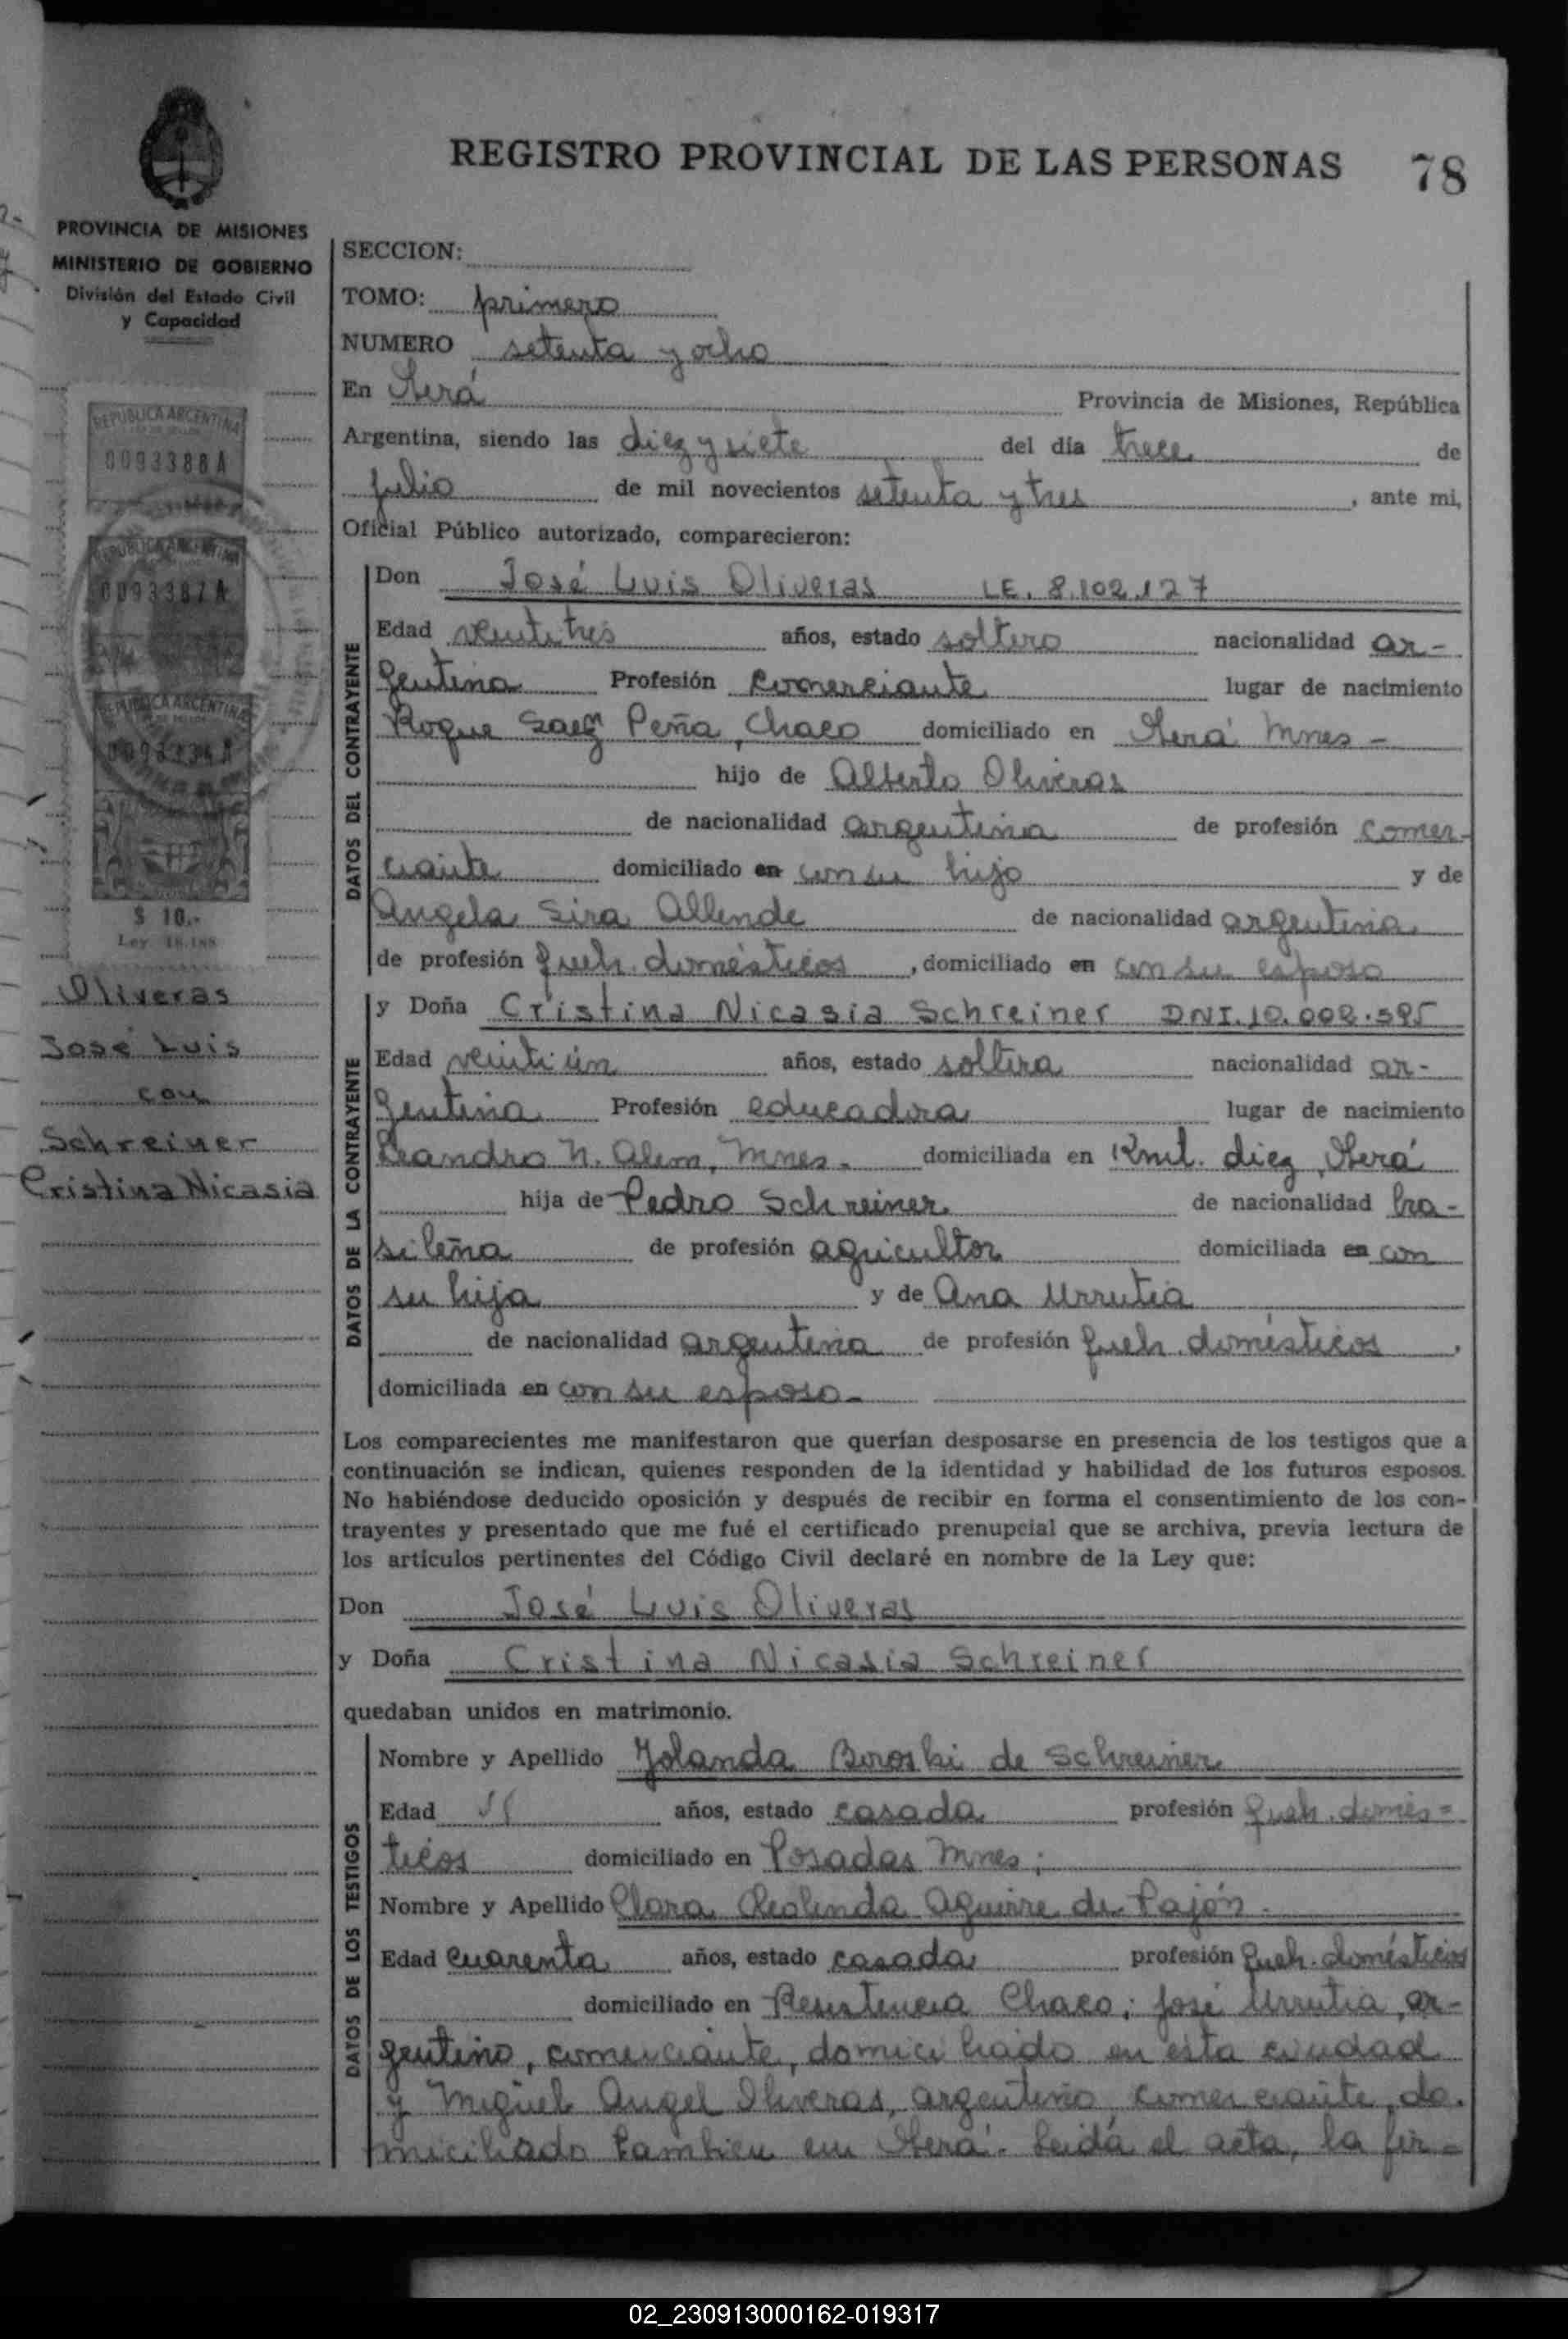 REGISTRO PROVINCIAL DE LAS PERSONAS 78
PROVINCIA DE MISIONES
MINISTERIO DE GOBIERNO
División del Estado Civil
y Capacidad
REPUBLICA ARGENTINA
0093388A
REPUBLICA ARGENTINA
0093387A
REPUBLICA ARGENTINA
$ 10.-
Ley 18.188
Oliveras
José Luis
con
Schreiner
Cristina Nicasia
SECCION:
TOMO: primero
NUMERO setenta y ocho
En Aerá Provincia de Misiones, República
Argentina, siendo las diez y siete del día trece de
julio de mil novecientos setenta y tres, ante mi,
Oficial Público autorizado, comparecieron:
DATOS DEL CONTRAYENTE
Don José Luis Oliveras LE. 8.102.127
Edad veintitrés años, estado soltero nacionalidad ar-
gentina Profesión comerciante lugar de nacimiento
Roque Saez Peña, Chaco domiciliado en Aerá Mnes -
hijo de Alberto Oliveras
de nacionalidad argentina de profesión comer-
ciante domiciliado en con su hijo y de
Angela Sira Allende de nacionalidad argentina
de profesión queh. domésticos, domiciliado en con su esposo
DATOS DE LA CONTRAYENTE
y Doña Cristina Nicasia Schreiner DNI. 10.002.595
Edad veintiún años, estado soltera nacionalidad ar-
gentina Profesión educadora lugar de nacimiento
Leandro N. Alem, Mnes. domiciliada en Kmt. diez, Aerá
hija de Pedro Schreiner de nacionalidad bra-
sileña de profesión agricultor domiciliada en con
su hija y de Ana Urrutia
de nacionalidad argentina de profesión queh. domésticos,
domiciliada en con su esposo-
Los comparecientes me manifestaron que querían desposarse en presencia de los testigos que a
continuación se indican, quienes responden de la identidad y habilidad de los futuros esposos.
No habiéndose deducido oposición y después de recibir en forma el consentimiento de los con-
trayentes y presentado que me fué el certificado prenupcial que se archiva, previa lectura de
los artículos pertinentes del Código Civil declaré en nombre de la Ley que:
Don José Luis Oliveras
y Doña Cristina Nicasia Schreiner
quedaban unidos en matrimonio.
DATOS DE LOS TESTIGOS
Nombre y Apellido Yolanda Boroski de Schreiner
Edad años, estado casada profesión queh. domés=
ticos domiciliado en Posadas Mnes;
Nombre y Apellido Clara Aguirre de Pajón.
Edad cuarenta años, estado casada profesión queh. domésticos
domiciliado en Resistencia Chaco; José Urrutia, ar-
gentino, comerciante, domiciliado en esta ciudad
y Miguel Angel Oliveras, argentino, comerciante, do-
miciliado tambien en Aerá. Leída el acta, la fir=
02_230913000162-019317